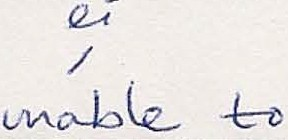 ei
unable to